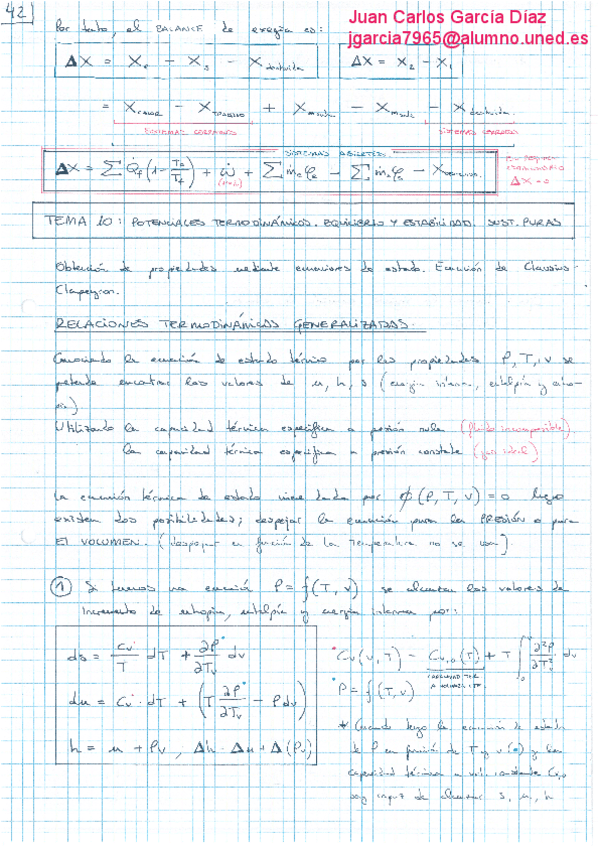 42
Juan Carlos García Díaz
jgarcia7965@alumno.uned.es
Por tanto, el BALANCE de exergía es:
ΔX = Xe - Xs - Xdestruida ΔX = X2 - X1
= Xcalor - Xtrabajo + Xmasa - Xmasa - Xdestruida.
SISTEMAS CERRADOS SISTEMAS CERRADOS
SISTEMAS ABIERTOS
ΔX = Σ Q̇f (1 - T0/Tf) + ẇ + Σ ṁe φe - Σ ṁs φs - Xdestruida.
ΔX = 0
TEMA 10: POTENCIALES TERMODINÁMICOS. EQUILIBRIO Y ESTABILIDAD. SUST. PURAS
Obtención de propiedades mediante ecuaciones de estado. Ecuación de Clausius-
Clapeyron.
RELACIONES TERMODINÁMICAS GENERALIZADAS.
Conociendo la ecuación de estado térmico por las propiedades P, T, v se
pretende encontrar los valores de u, h, s (energía interna, entalpía y entro-
pía)
Utilizando la capacidad térmica específica a presión nula (fluido incompresible).
la capacidad térmica específica a presión constante (gas ideal)
La ecuación térmica de estado viene dada por φ(P, T, v) = 0 luego
existen dos posibilidades; despejar la ecuación para la PRESIÓN o para
El VOLUMEN. (despejar en función de la Temperatura no se usa).
1 Si tenemos una ecuación P = f(T, v) se alcanzan los valores de
Incremento de entropía, entalpía y energía interna por:
ds = Cv/T dT + ∂P/∂Tv dv
du = Cv · dT + (T ∂P/∂Tv - Pdv)
h = u + Pv, Δh = Δu + Δ(Pv)
Cv(v, T) - Cv,0(T) + T ∫ ∂²P/∂T²v dv
P = f(T, v)
* Cuando tengo la ecuación de estado
de P en función de T y v (*) y la
capacidad térmica a vol. constante Cv,0